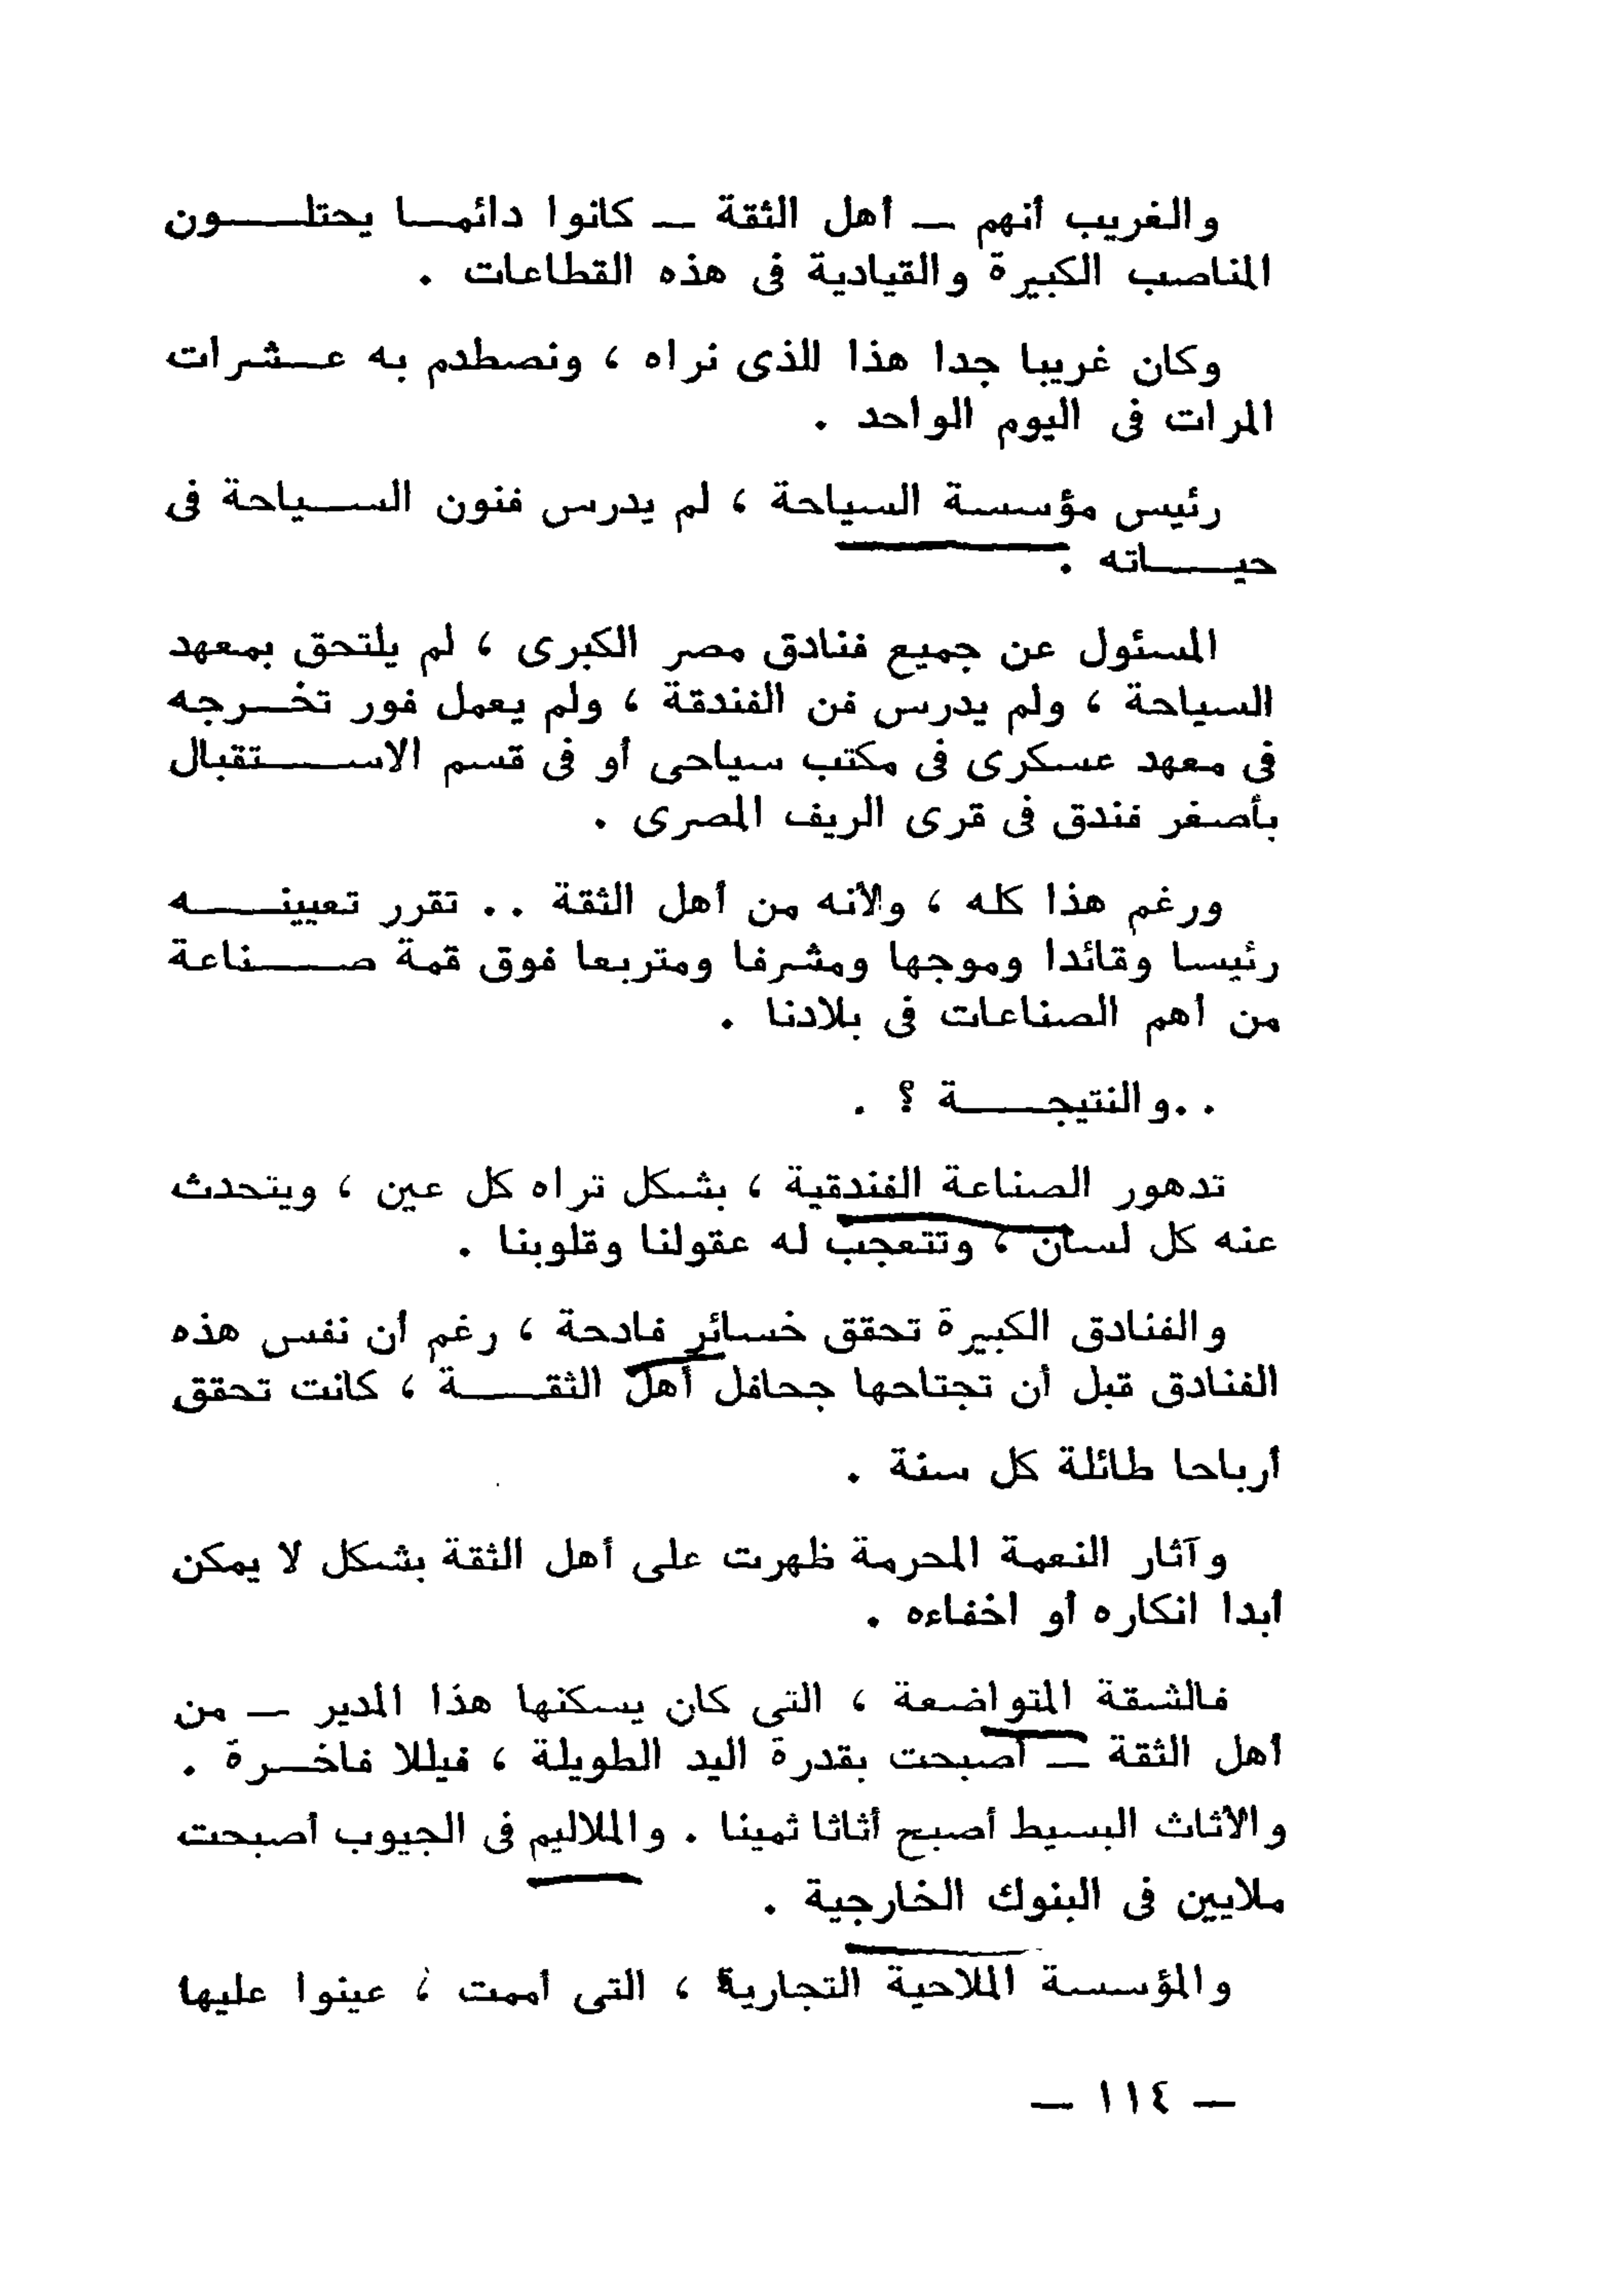 والغريب أنهم — أهل الثقة — كانوا دائما يحتلون
المناصب الكبيرة والقيادية فى هذه القطاعات .
وكان غريبا جدا هذا للذى نراه ، ونصطدم به عشرات
المرات فى اليوم الواحد .
رئيس مؤسسة السياحة ، لم يدرس فنون السياحة فى
حياته .
المسئول عن جميع فنادق مصر الكبرى ، لم يلتحق بمعهد
السياحة ، ولم يدرس فن الفندقة ، ولم يعمل فور تخرجه
فى معهد عسكرى فى مكتب سياحى أو فى قسم الاستقبال
بأصغر فندق فى قرى الريف المصرى .
ورغم هذا كله ، ولأنه من أهل الثقة .. تقرر تعيينه
رئيسا وقائدا وموجها ومشرفا ومتربعا فوق قمة صناعة
من أهم الصناعات فى بلادنا .
..والنتيجة ؟ .
تدهور الصناعة الفندقية ، بشكل تراه كل عين ، ويتحدث
عنه كل لسان ، وتتعجب له عقولنا وقلوبنا .
والفنادق الكبيرة تحقق خسائر فادحة ، رغم أن نفس هذه
الفنادق قبل أن تجتاحها جحافل أهل الثقة ، كانت تحقق
أرباحا طائلة كل سنة .
وآثار النعمة المحرمة ظهرت على أهل الثقة بشكل لا يمكن
أبدا انكاره أو اخفاءه .
فالشقة المتواضعة ، التى كان يسكنها هذا المدير — من
أهل الثقة — أصبحت بقدرة اليد الطويلة ، فيللا فاخرة .
والأثاث البسيط أصبح أثاثا ثمينا . والملاليم فى الجيوب أصبحت
ملايين فى البنوك الخارجية .
والمؤسسة الملاحية التجارية ، التى أممت ، عينوا عليها
— ١١٤ —